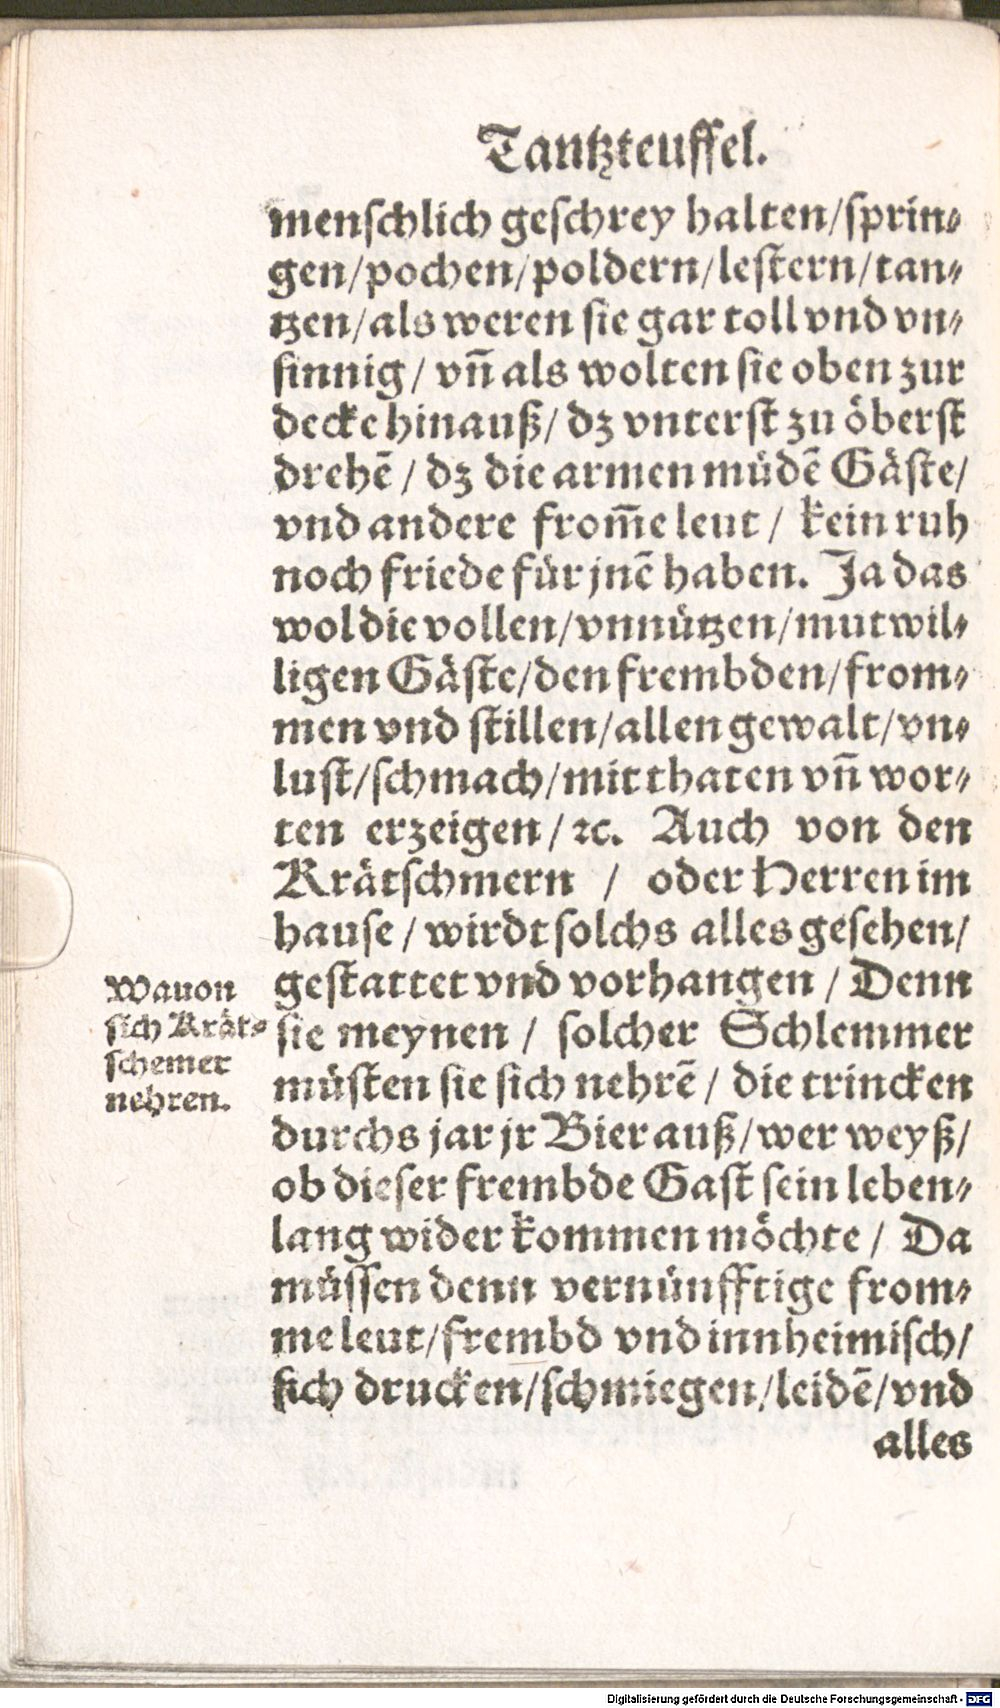 Tantzteuffel.
menschlich geschrey halten/sprin⸗
gen/pochen/poldern/lestern/tan⸗
tzen/als weren sie gar toll vnd vn⸗
sinnig/ vñ als wolten sie oben zur
decke hinauß/ dz vnterst zu öberst
drehẽ/ dz die armen müdẽ Gäste/
vnd andere from̃e leut/ kein ruh
noch friede für jnẽ haben. Ja das
wol die vollen/vnnützen/mutwil⸗
ligen Gäste/den frembden/from⸗
men vnd stillen/allen gewalt/vn⸗
lust/schmach/mit thaten vñ wor⸗
ten erzeigen/ ꝛc. Auch von den
Krätschmern / oder Herren im
hause/ wirdt solchs alles gesehen/
gestattet vnd vorhangen/ Denn
sie meynen/ solcher Schlemmer
müsten sie sich nehrẽ/ die trincken
durchs jar jr Bier auß/wer weyß/
ob dieser frembde Gast sein leben⸗
lang wider kommen möchte/ Da
müssen denn vernünfftige from⸗
me leut/frembd vnd innheimisch/
sich drucken/schmiegen/leidẽ/vnd
alles
Wauon
sich Krät⸗
schemer
nehren.
Digitalisierung gefördert durch die Deutsche Forschungsgemeinschaft - DFG